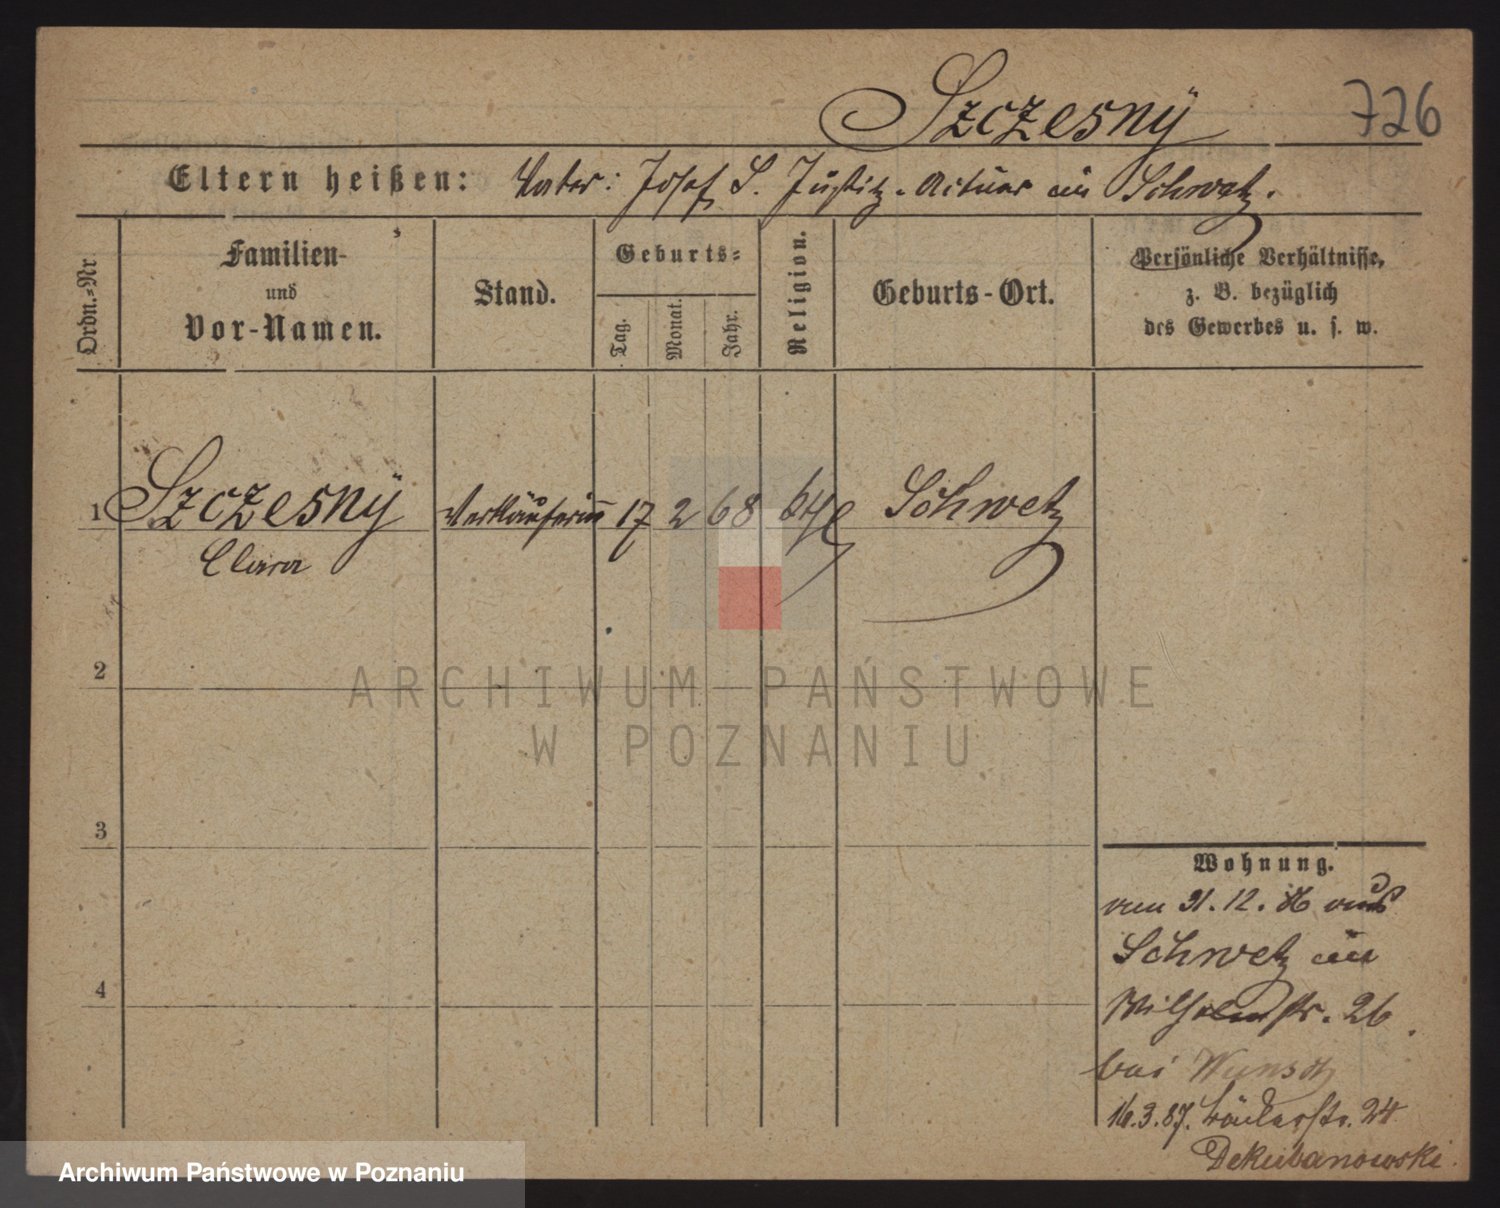 Szczesny 726
Eltern heißen: Vater: Josef S. Justiz-Actuar in Schwetz.
Ordn.-Nr.
Familien-
und
Vor-Namen.
Stand.
Geburts-
Tag.
Monat.
Jahr.
Religion.
Geburts-Ort.
Persönliche Verhältnisse,
z. B. bezüglich
des Gewerbes u. s. w.
1 Szczesny Verkäuferin 17 2 68 Schwetz
Clara
2
ARCHIWUM PAŃSTWOWE
W POZNANIU
3
Wohnung.
31.12.86 aus
Schwetz in
4
Wilhelmstr. 26
bei Wunsch
16.3.87. Bäckerstr. 24
Dekubanowski.
Archiwum Państwowe w Poznaniu